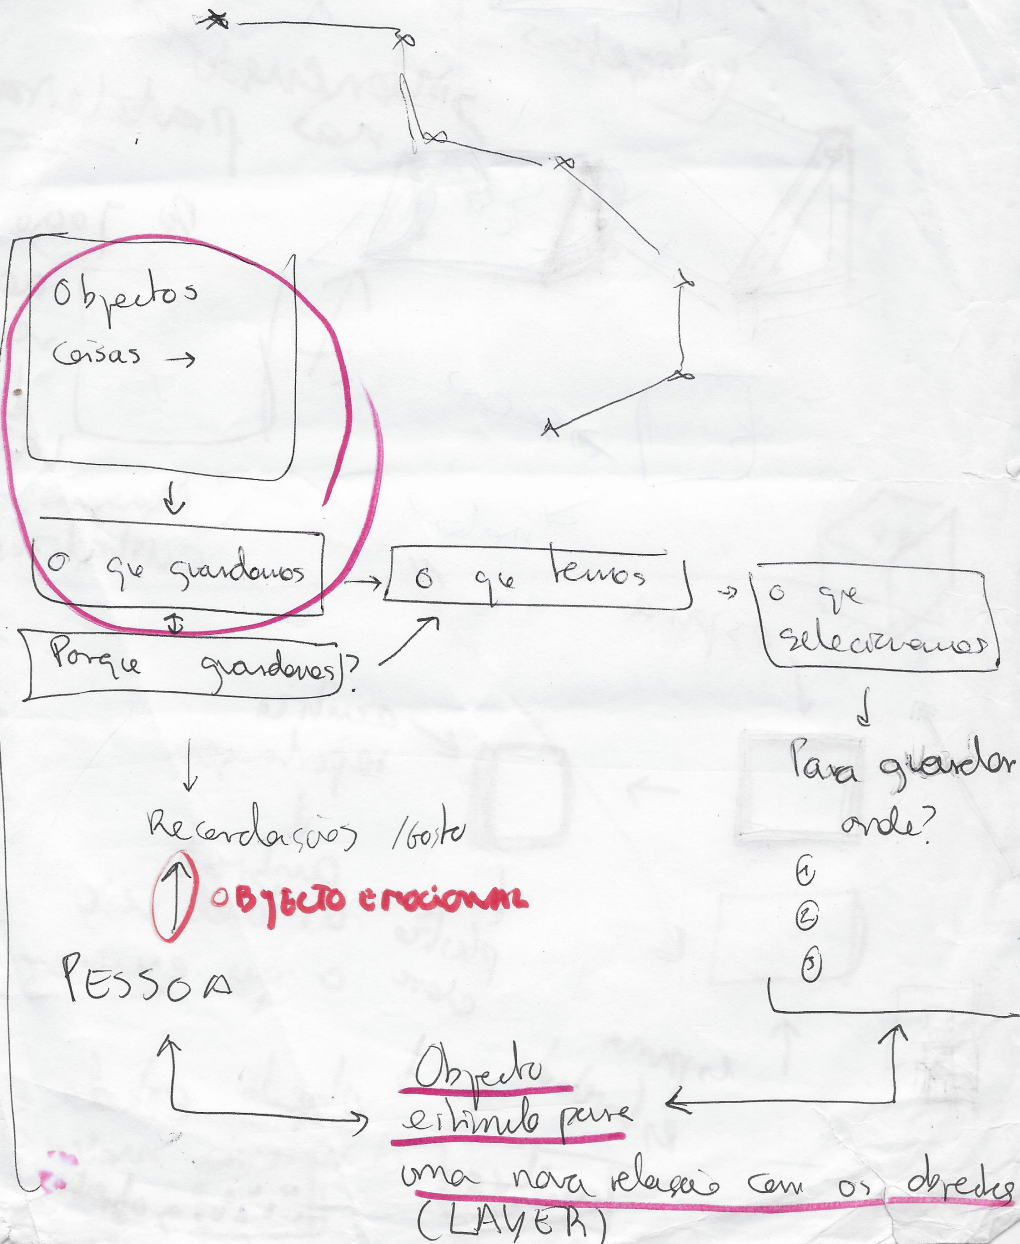 Objectos
Coisas →
O que guardamos
O que temos
O que
selecionamos
Porque guardamos?
Para guardar
onde?
Recordações / Gosto
1
2
3
OBJECTO EMOCIONAL
PESSOA
Objecto
estimulo para
uma nova relação com os objectos
(LAYER)